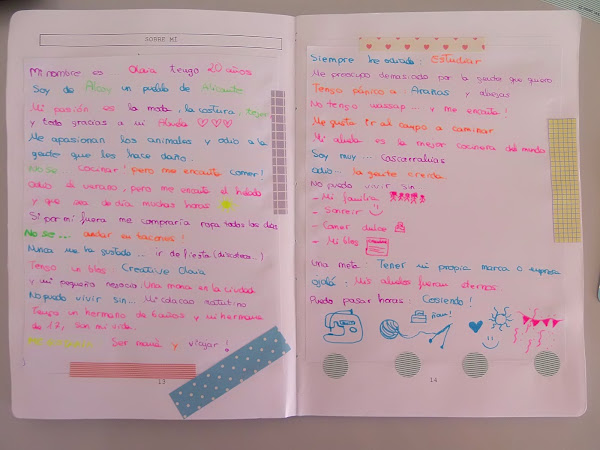 SOBRE MÍ
Mi nombre es Olaia tengo 20 años
Soy de Alcoy un pueblo de Alicante
Mi pasión es la moda, la costura,
y todo gracias a mi Abuela
Me apasionan los animales y odio a la
gente que les hace daño.
No se... Cocinar! pero me encanta comer!
Odio el verano, pero me encanta el helado
y que sea de día muchas horas
Si por mi fuera me compraría ropa todos los días
No se... andar en tacones!
Nunca me ha gustado.. ir de fiesta (discotecas...)
Tengo un blog: Creative Olaia
y mi pequeño negocio: Una mona en la ciudad
No puedo vivir sin... Mi colacao matutino
Tengo un hermano de 6 años y mi hermana
de 17, son mi vida.
Ser mamá y viajar!
13
Siempre he odiado: Estudiar
Me preocupo demasiado por la gente que quiero
Tengo pánico a: Arañas y abejas
No tengo wassap... y me encanta!
Me gusta ir al campo a caminar
Mi abuela es la mejor cocinera del mundo
Soy muy... cascarrabias
odio... la gente creida.
No puedo vivir sin
- Mi familia
- Sonreir
- Comer dulce
- Mi blog
Una meta: Tener mi propia marca o empresa
ojalá: Mis abuelos fueran eternos.
Puedo pasar horas: Cosiendo!
14